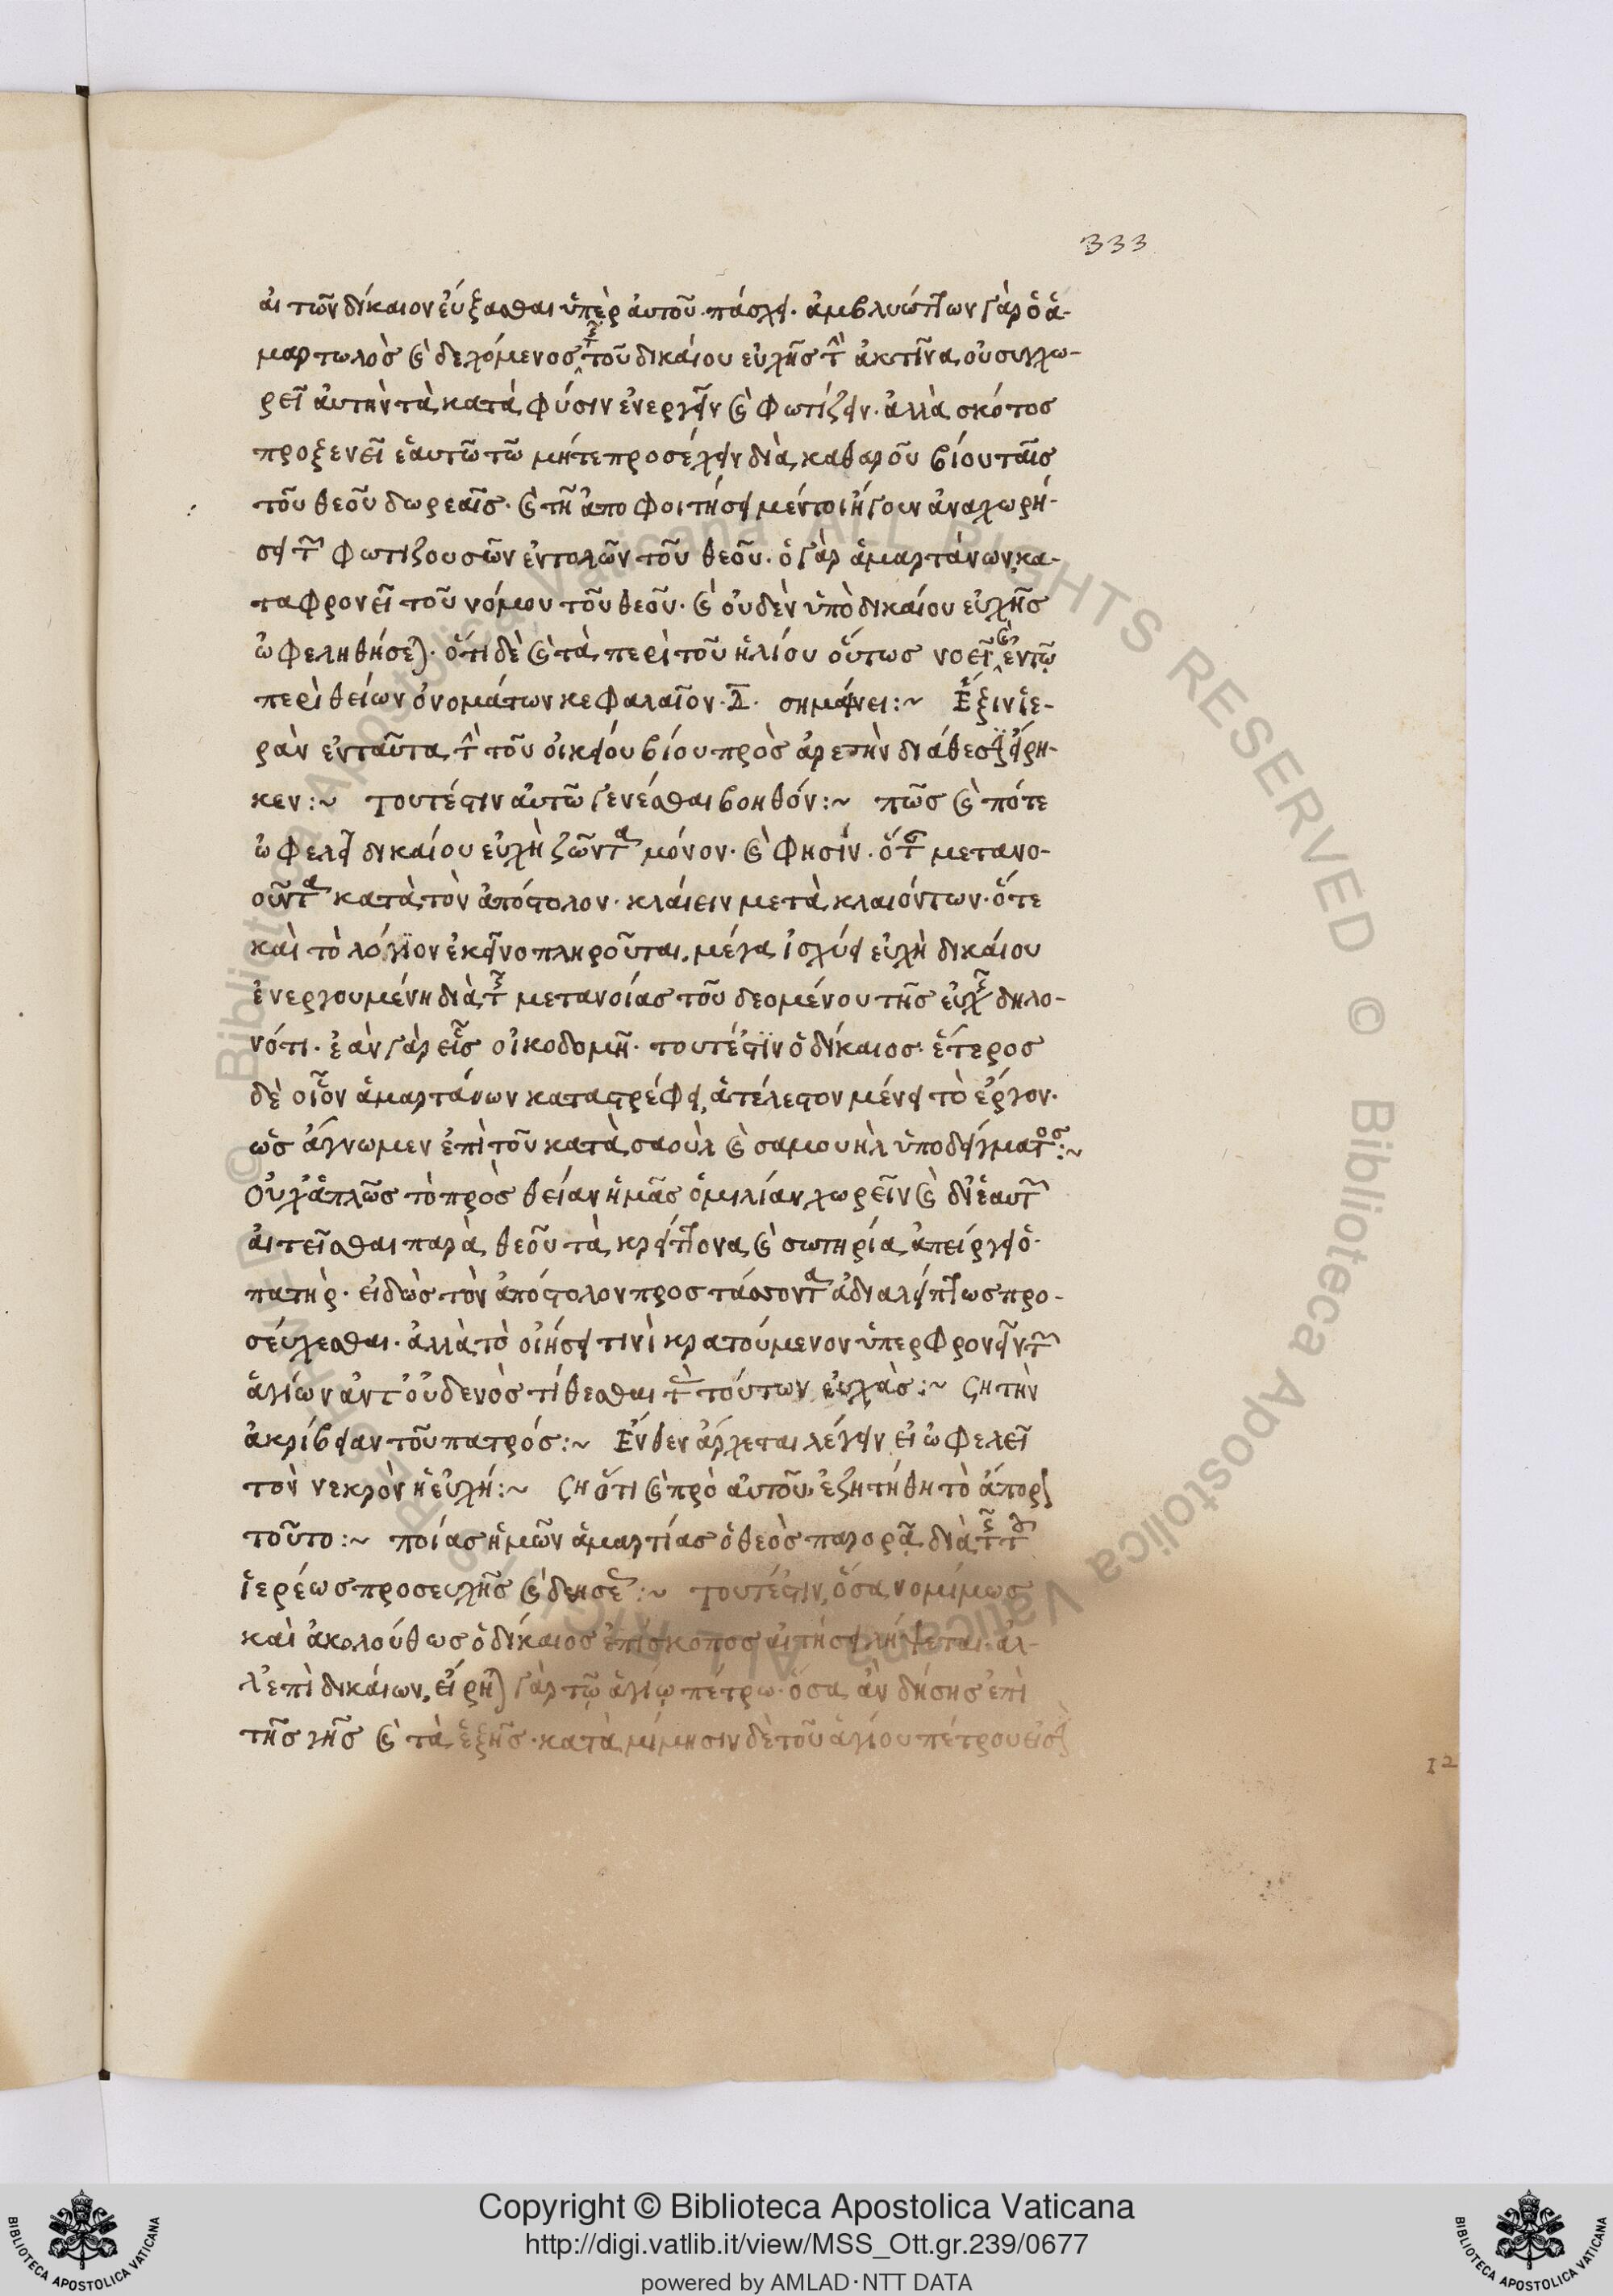 333
αἰτῶν δίκαιον εὔξασθαι ὑπὲρ αὐτοῦ πάσχει· ἀμβλυώττων γὰρ ὁ ἁ-
μαρτωλὸς καὶ δεχόμενος τῆς τοῦ δικαίου εὐχῆς τὴν ἀκτῖνα, οὐ συγχω-
ρεῖ αὐτὴν τὰ κατὰ φύσιν ἐνεργεῖν καὶ φωτίζειν· ἀλλὰ σκότος
προξενεῖ ἑαυτῶ τῶ μήτε προσέχειν διὰ καθαροῦ βίου ταῖς
τοῦ θεοῦ δωρεαῖς· καὶ τῆ ἀποφοιτήσει μέντοι ἤγουν ἀναχωρή-
σει τῶν φωτιζουσῶν ἐντολῶν τοῦ θεοῦ· ὁ γὰρ ἁμαρτάνων, κα-
ταφρονεῖ τοῦ νόμου τοῦ θεοῦ· καὶ οὐδὲν ὑπὸ δικαίου εὐχῆς
ὠφεληθήσεται· ὅτι δὲ καὶ τὰ περὶ τοῦ ἡλίου οὕτως νοεῖ, καὶ ἐν τῷ
περὶ θείων ὀνομάτων κεφαλαῖον· Δ· σημαίνει:~ Ἕξιν ἱε-
ρὰν ἐνταῦτα τὴν τοῦ οἰκείου βίου πρὸς ἀρετὴν διάθεσιν εἴρη-
κεν:~ Τουτέστιν αὐτῶ γενέσθαι βοηθόν:~ πῶς καὶ πότε
ὠφελεῖ δικαίου εὐχὴ ζῶντα μόνον· καὶ φησὶν· ὅτε μετανο-
οῦντα κατὰ τὸν ἀπόστολον· κλάιειν μετὰ κλαιόντων· ὅτε
καὶ τὸ λόγϊον ἐκεῖνο πληροῦται, μέγα ἰσχύει εὐχὴ δικάιου
ἐνεργουμένη διὰ τῆς μετανοίας τοῦ δεομένου τῆς εὐχῆς δηλο-
νότι· ἐὰν γὰρ εἷς οἰκοδομῆ· τουτέστϊν ὁ δίκαιος· ἕτερος
δὲ οἷον ἁμαρτάνων καταστρέφει, ἀτέλεστον μένει τὸ ἔργον·
ὡς ἄγνωμεν ἐπὶ τοῦ κατὰ σαοὺλ καὶ σαμουὴλ ὑποδείγματος:~
Οὐχ ἁπλῶς τὸ πρὸς θείαν ἡμᾶς ὁμιλίαν χωρεῖν καὶ δι' ἑαυτῶν
αἰτεῖσθαι παρὰ θεοῦ τὰ κρείττονα καὶ σωτηρία, ἀπείργει ὁ
πατήρ· εἰδὼς τὸν ἀπόστολον προστάσσοντα ἀδιαλείπτως προ-
σέυχεσθαι· ἀλλὰ τὸ οἰήσει τινὶ κρατούμενον ὑπερφρονεῖν τῶν
ἁγίων ἀντ' οὐδενὸς τίθεσθαι τὰς τούτων εὐχὰς:~ ση τὴν
ἀκρίβειαν τοῦ πατρός:~ Ἔνθεν ἄρχεται λέγειν, εἰ ὠφελεῖ
τὸν νεκρὸν ἡ εὐχή:~ ση ὅτι καὶ πρὸ αὐτοῦ ἐζητήθη τὸ ἄπορον
τοῦτο:~ ποίας ἡμῶν ἁμαρτίας ὁ θεὸς παρορᾷ, διὰ τῆς τοῦ
ἱερέως προσευχῆς καὶ δεήσεως:~ Τουτέστιν, ὅσα νομίμως
καὶ ἀκολούθως ὁ δίκαιος ἐπίσκοπος αἰτήσει, λήψεται· ἀλ-
λ' ἐπὶ δικάιων, εἴρηται γὰρ τῷ ἁγίῳ πέτρω· ὅσα ἂν δήσης ἐπὶ
τῆς γῆς καὶ τὰ ἑξῆς· κατὰ μίμησιν δὲ τοῦ ἁγίου πέτρου
12
© Biblioteca Apostolica Vaticana ALL RIGHTS RESERVED © Biblioteca Apostolica Vaticana ALL RIGHTS RESERVED
Copyright © Biblioteca Apostolica Vaticana
http://digi.vatlib.it/view/MSS_Ott.gr.239/0677
powered by AMLAD·NTT DATA
BIBLIOTECA APOSTOLICA VATICANA
BIBLIOTECA APOSTOLICA VATICANA